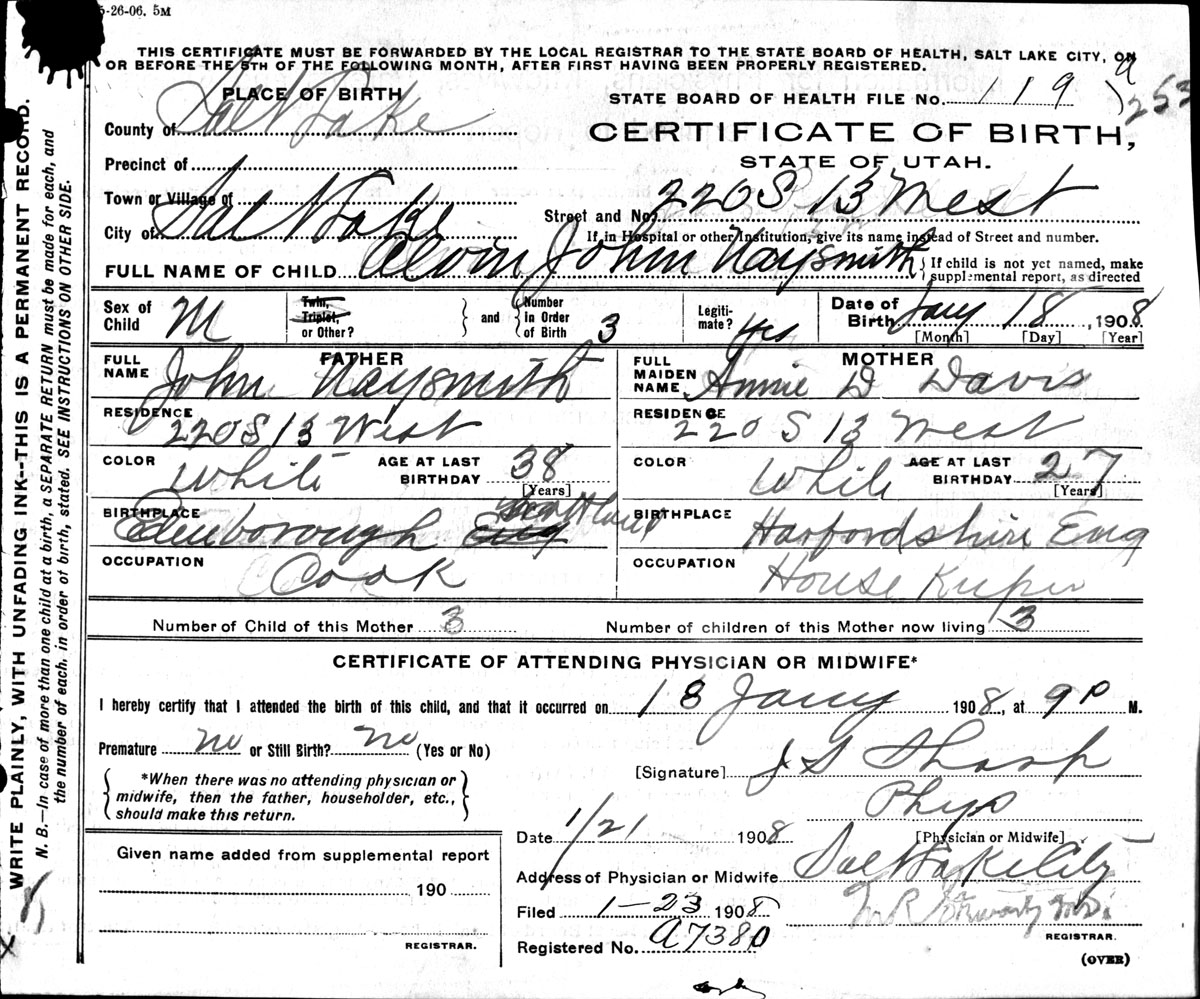 5-26-06. 5M
THIS CERTIFICATE MUST BE FORWARDED BY THE LOCAL REGISTRAR TO THE STATE BOARD OF HEALTH, SALT LAKE CITY, ON
OR BEFORE THE 5TH OF THE FOLLOWING MONTH, AFTER FIRST HAVING BEEN PROPERLY REGISTERED.
PLACE OF BIRTH
STATE BOARD OF HEALTH FILE No. 119
County of Salt Lake
CERTIFICATE OF BIRTH,
STATE OF UTAH.
Precinct of
Town or Village of
Street and No. 220 S 13 West
City of Salt Lake
If in Hospital or other Institution, give its name instead of Street and number.
FULL NAME OF CHILD Alvin John Naysmith
If child is not yet named, make
supplemental report, as directed
Sex of Child M
Twin, Triplet, or Other?
and
Number in Order of Birth 3
Legitimate? yes
Date of Birth Jany 18, 1908
[Month] [Day] [Year]
FATHER
FULL NAME John Naysmith
RESIDENCE 220 S 13 West
COLOR White AGE AT LAST BIRTHDAY 38 [Years]
BIRTHPLACE Edenborough Eng Scottland
OCCUPATION Cook
MOTHER
FULL MAIDEN NAME Annie D Davis
RESIDENCE 220 S 13 West
COLOR White AGE AT LAST BIRTHDAY 27 [Years]
BIRTHPLACE Harfordshire Eng
OCCUPATION House Keeper
Number of Child of this Mother 3
Number of children of this Mother now living 3
CERTIFICATE OF ATTENDING PHYSICIAN OR MIDWIFE*
I hereby certify that I attended the birth of this child, and that it occurred on 18 Jany 1908, at 9 P M.
Premature no or Still Birth? no (Yes or No)
*When there was no attending physician or
midwife, then the father, householder, etc.,
should make this return.
[Signature] J S
Phys
[Physician or Midwife]
Date 1/21 1908
Address of Physician or Midwife Salt Lake City
Filed 1-23 1908
M R Stewart M.D.
REGISTRAR.
Registered No. A7380
(OVER)
Given name added from supplemental report
190
REGISTRAR.
WRITE PLAINLY, WITH UNFADING INK--THIS IS A PERMANENT RECORD.
N. B.—In case of more than one child at a birth, a SEPARATE RETURN must be made for each, and
the number of each, in order of birth, stated. SEE INSTRUCTIONS ON OTHER SIDE.